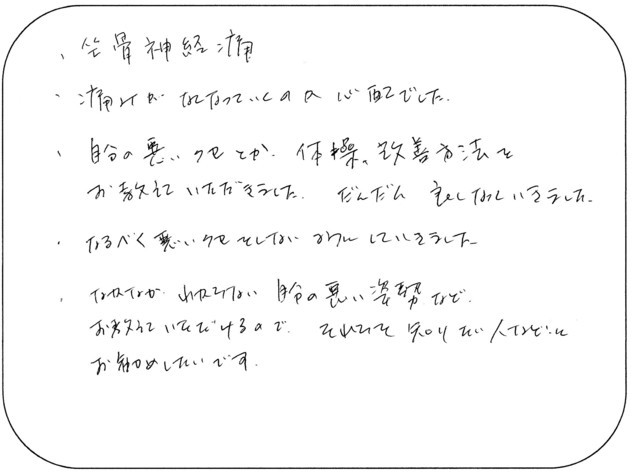 ・坐骨神経痛
・痛みがなくなっていくのか心配でした。
・自分の悪いクセとか、体操、改善方法を
お教えていただきました。だんだん良くなっていきました。
・なるべく悪いクセをしないようにしていきました。
・なかなかわからない自分の悪い姿勢など、
お教えていただけるので、それらを知りたい人などに
お勧めしたいです。